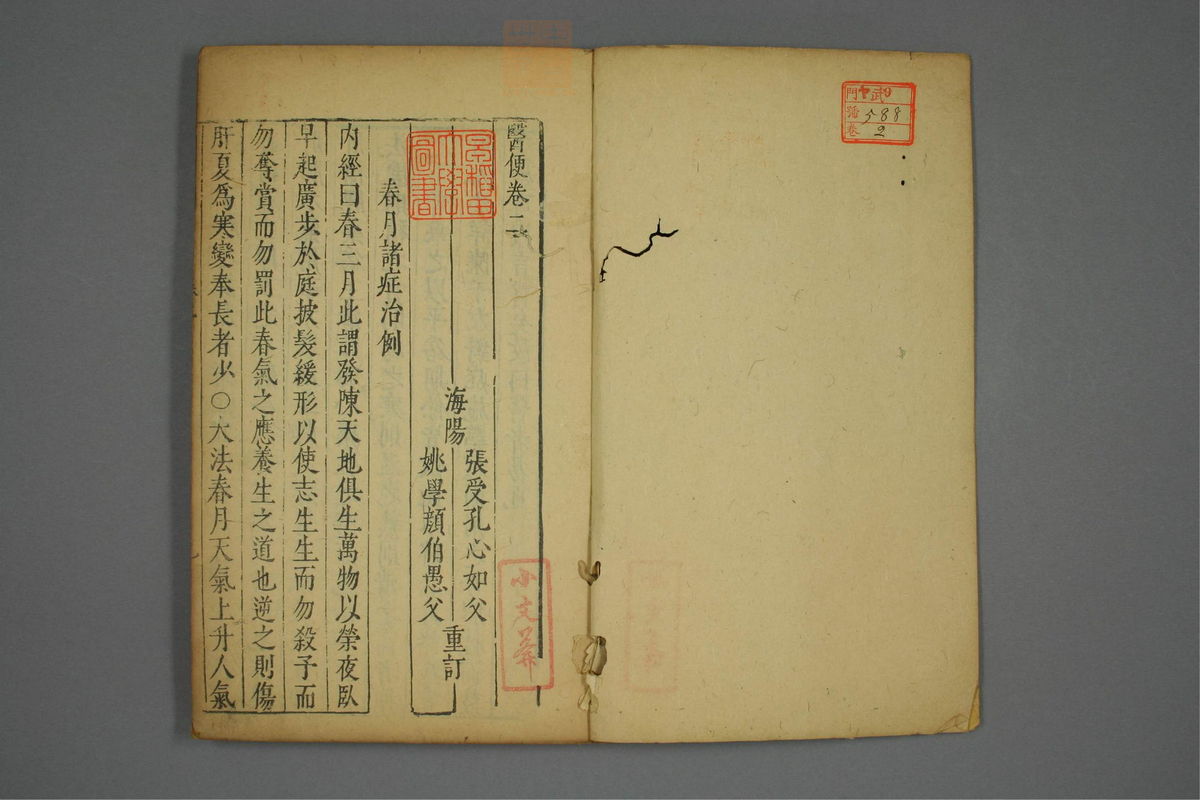 門 ヤ武9
號 588
卷 2
醫便卷二
早稲田
大學
圖書
海陽
張受孔心如父
姚學顔伯愚父
重訂
春月諸症治例
内經曰春三月此謂發陳天地俱生萬物以榮夜臥
早起廣步於庭披髮緩形以使志生生而勿殺予而
勿奪賞而勿罰此春氣之應養生之道也逆之則傷
肝夏爲寒變奉長者少〇大法春月天氣上升人氣